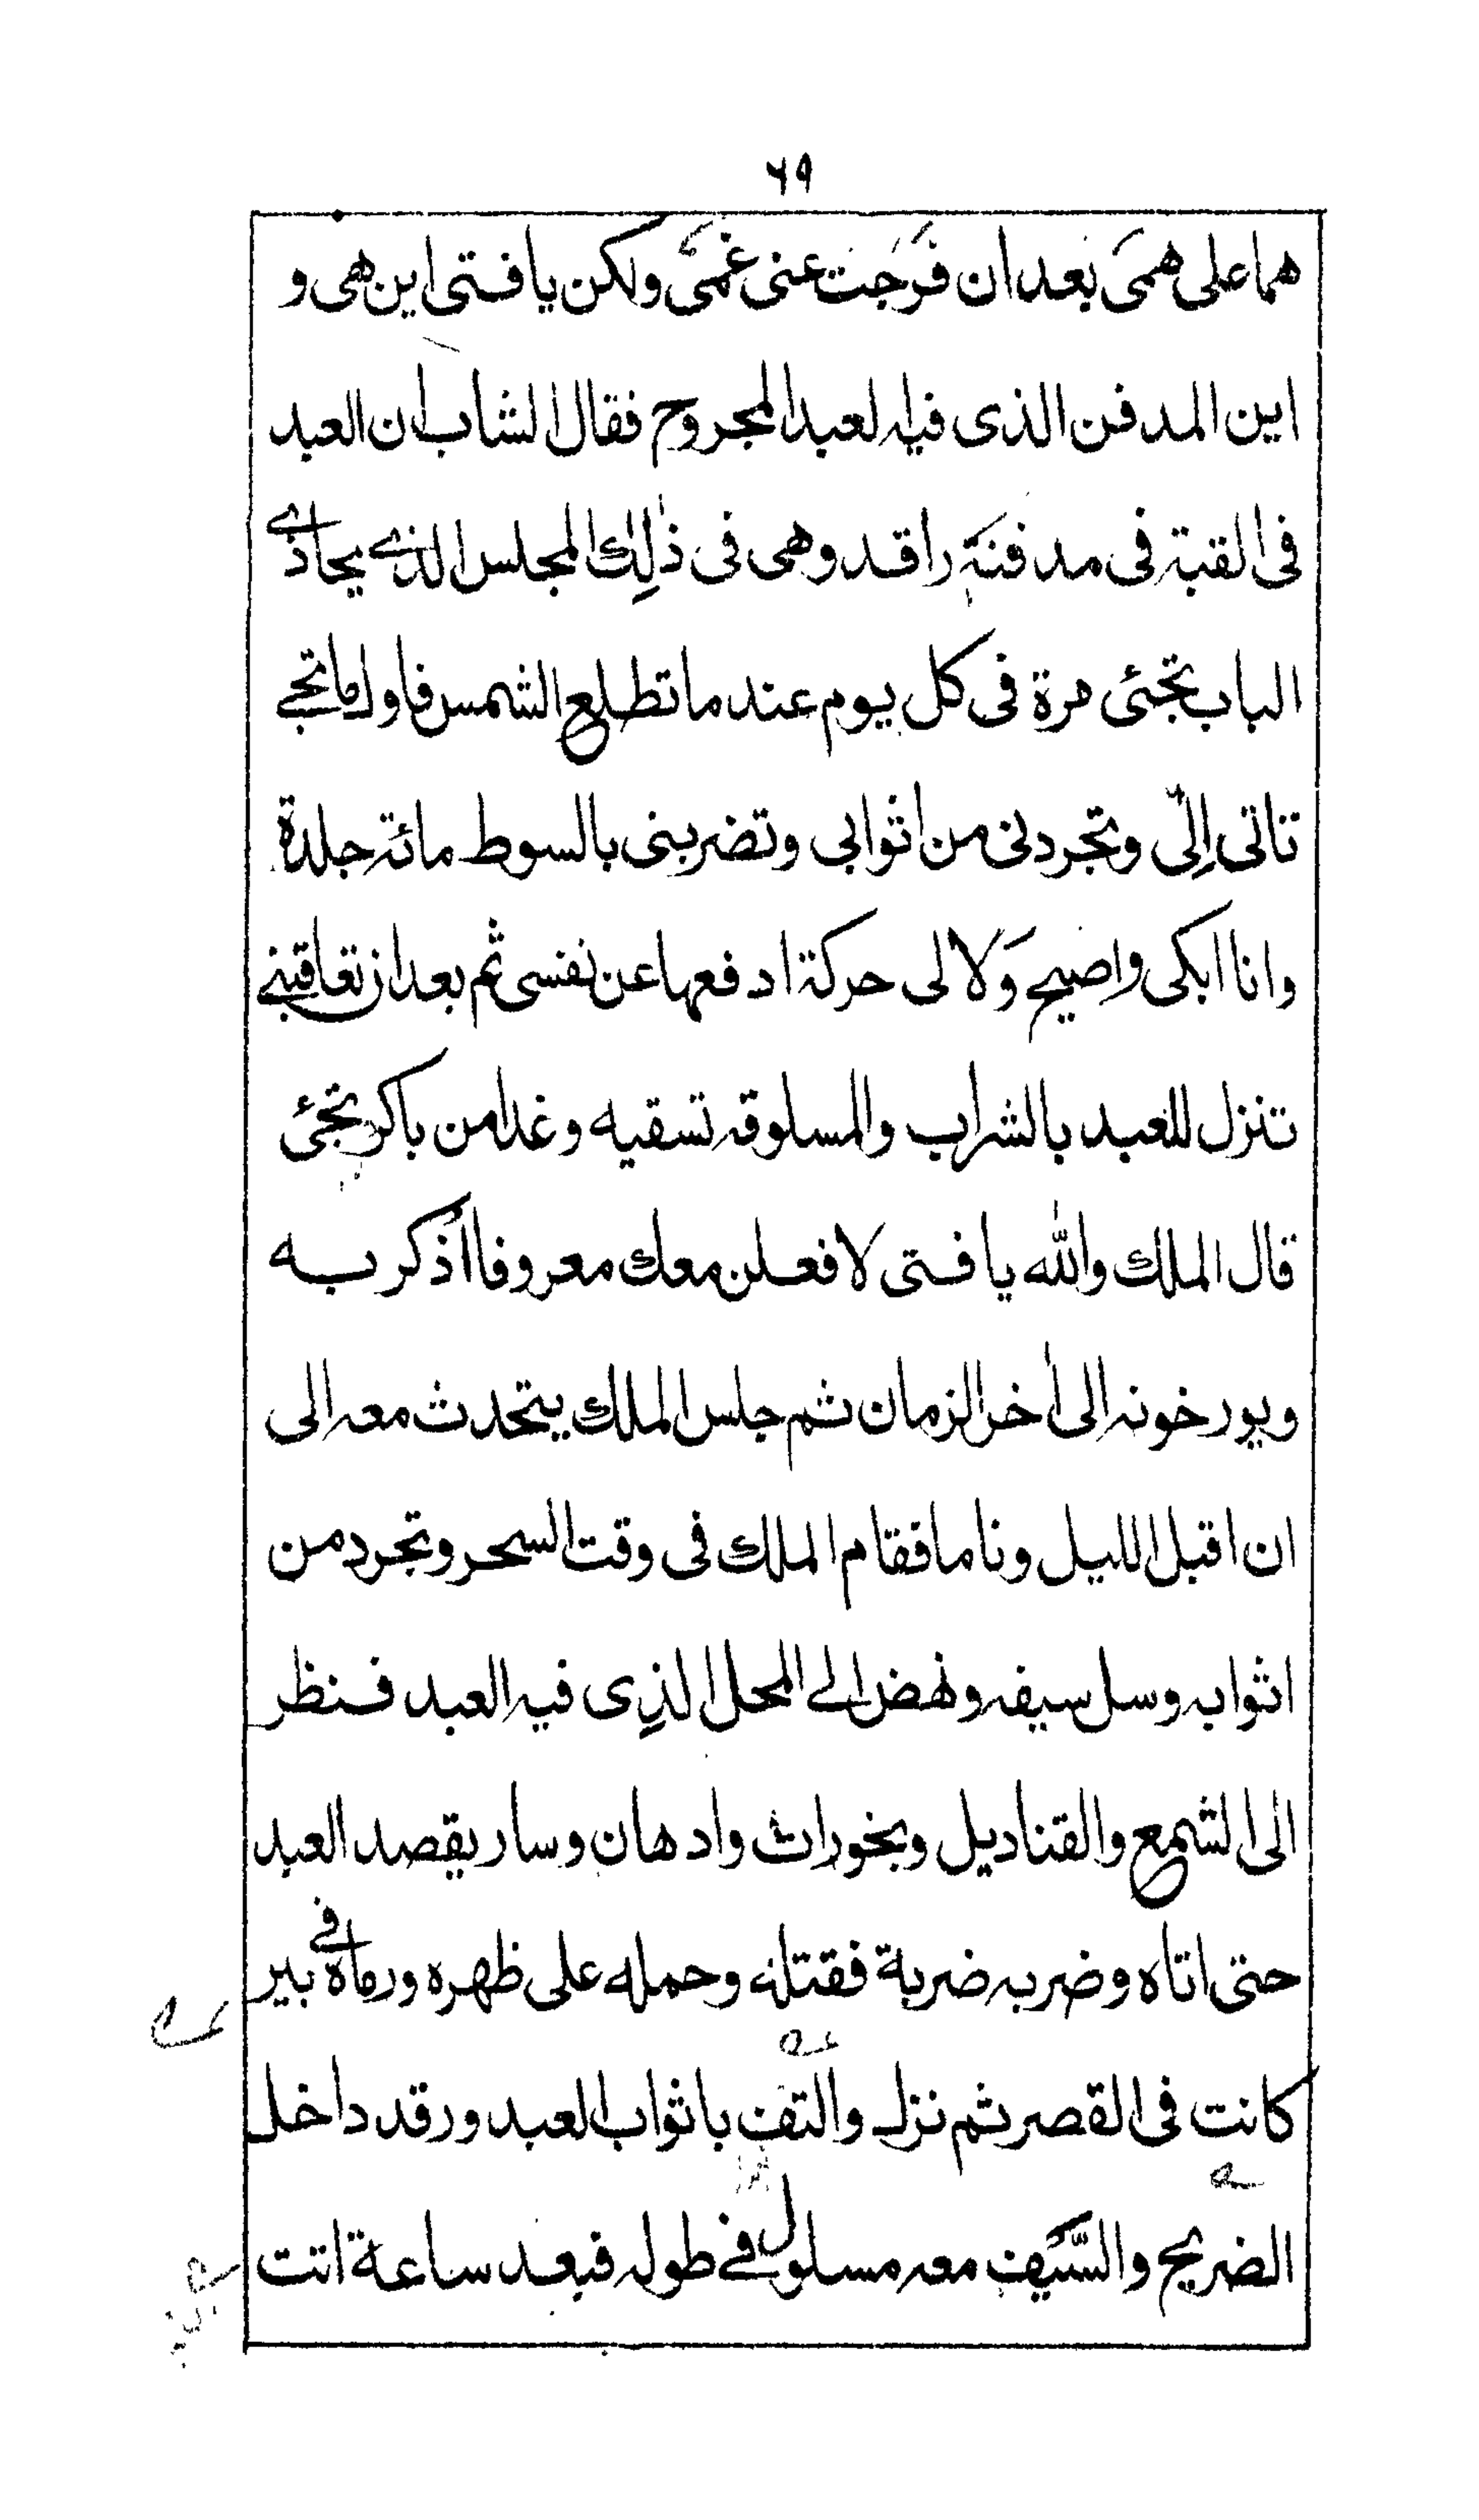 ٦٩
هما على همى بعد ان فرجت عنى غمى ولكن يا فتى اين هى و
اين المدفن الذى فيه العبد المجروح فقال الشاب ان العبد
فى القبة فى مدفنة راقد وهى فى ذلك المجلس الذى يحاذى
الباب تجئى مرة فى كل يوم عند ما تطلع الشمس فاول ما تجى
تاتى اِلىّ وتجردنى من اثوابى وتضربنى بالسوط مائة جلدة
وانا ابكى واصيح وَلا لى حركة ادفعها عن نفسى ثم بعد ان تعاقبنى
تنزل للعبد بالشراب والمسلوقة تسقيه وغدا من باكر تجئى
قال الملك والله يا فتى لافعلن معك معروفا اذكر به
ويورخونه الى اخر الزمان ثم جلس الملك يتحدث معه الى
ان اقبل الليل وناما فقام الملك فى وقت السحر وتجرد من
اثوابه وسل سيفه ونهض الى المحل الذِى فيه العبد فنظر
الى الشمع والقناديل وبخورات وادهان وسار يقصد العبد
حتى اتاه وضربه ضربة فقتله وحمله على ظهره ورماه فى بير
كانت فى القصر ثم نزل والتف باثواب العبد ورقد داخل
الضريح والسَّيف معه مسلول فى طوله فبعد ساعة اتت